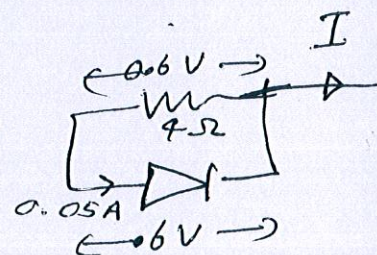 I
0.6 V
4 Ω
0.05A
.6 V